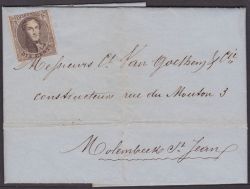 Messieurs Ct. Van Goethem & Cie
constructeurs rue du Mouton 3
Molembeek St. Jean